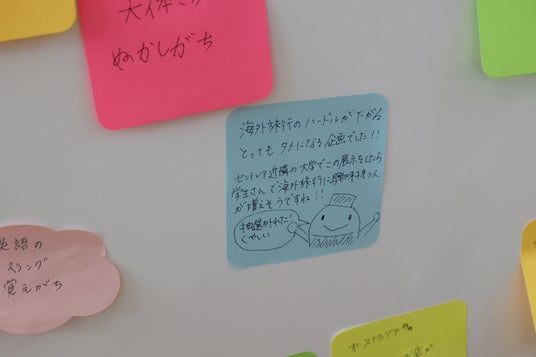 大体さ
ぬかしがち
海外旅行のハードルがたがる
とっても タメになる 企画でした!!
セントレア近隣の大学でこの展示をしたら
学生さんで海外旅行に興味持つ人
が増えそうですね!!
抽選かれた!
くやしい
英語の
スラング
覚えがち
オーストラリアの
店が